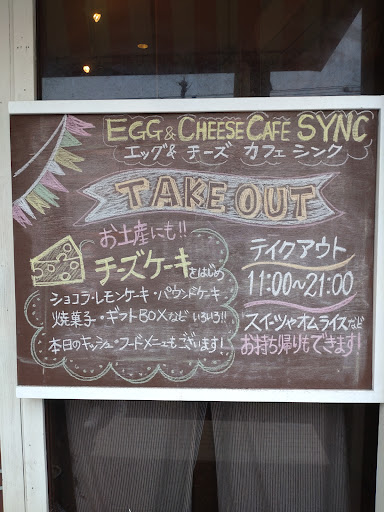 EGG & CHEESE CAFE SYNC
エッグ & チーズ カフェ シンク
TAKE OUT
お土産にも!!
チーズケーキをはじめ
ショコラ・レモンケーキ・パウンドケーキ
焼菓子・ギフトBOXなど いろいろ!!
本日のキッシュ・フードメニューもございます!
テイクアウト
11:00~21:00
スイーツやオムライスなど
お持ち帰りもできます!